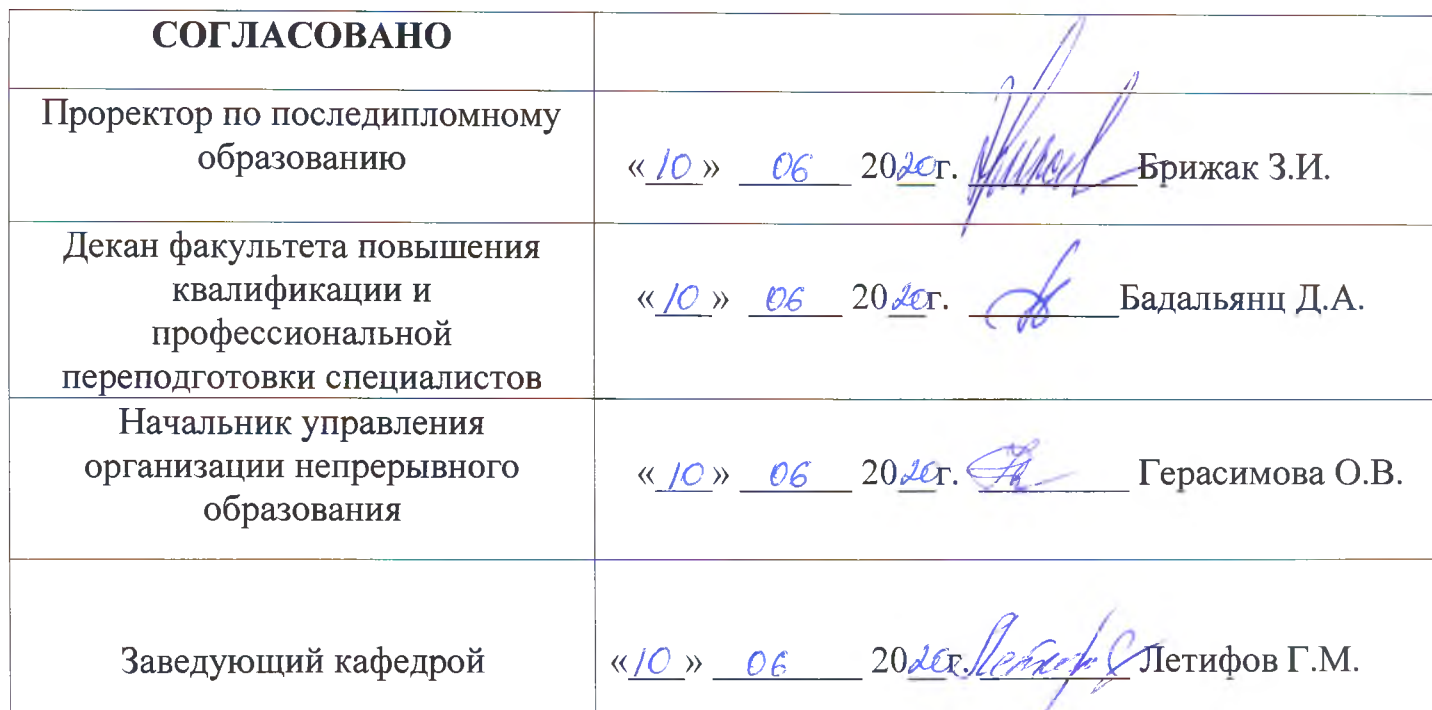 СОГЛАСОВАНО
Проректор по последипломному
образованию
«10» 06 2020г. Брижак З.И.
Декан факультета повышения
квалификации и
профессиональной
переподготовки специалистов
«10» 06 2020г. Бадальянц Д.А.
Начальник управления
организации непрерывного
образования
«10» 06 2020г. Герасимова О.В.
Заведующий кафедрой
«10» 06 2020г. Летифов Г.М.